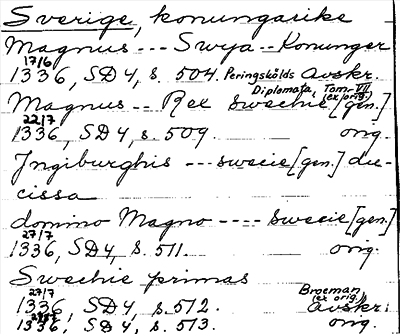 Sverige, konungarike
Magnus --- Swya -- Konunger
17/6
1336, SD 4, s. 504. Peringskölds Avskr.
Diplomata, Tom. VII
(ex orig.)
Magnus -- Rex Swechie [gen.]
22/7
1336, SD 4, s. 509. orig.
Ingiburghis --- sweeie [gen.] du-
cissa
domino Magno ---- Sweeie [gen.]
27/7
1336, SD 4, s. 511. orig.
Swechie primas
27/7 Broeman
(ex orig.)
1336, SD 4, s. 512. Avskr.
1336, SD 4, s. 513. orig.